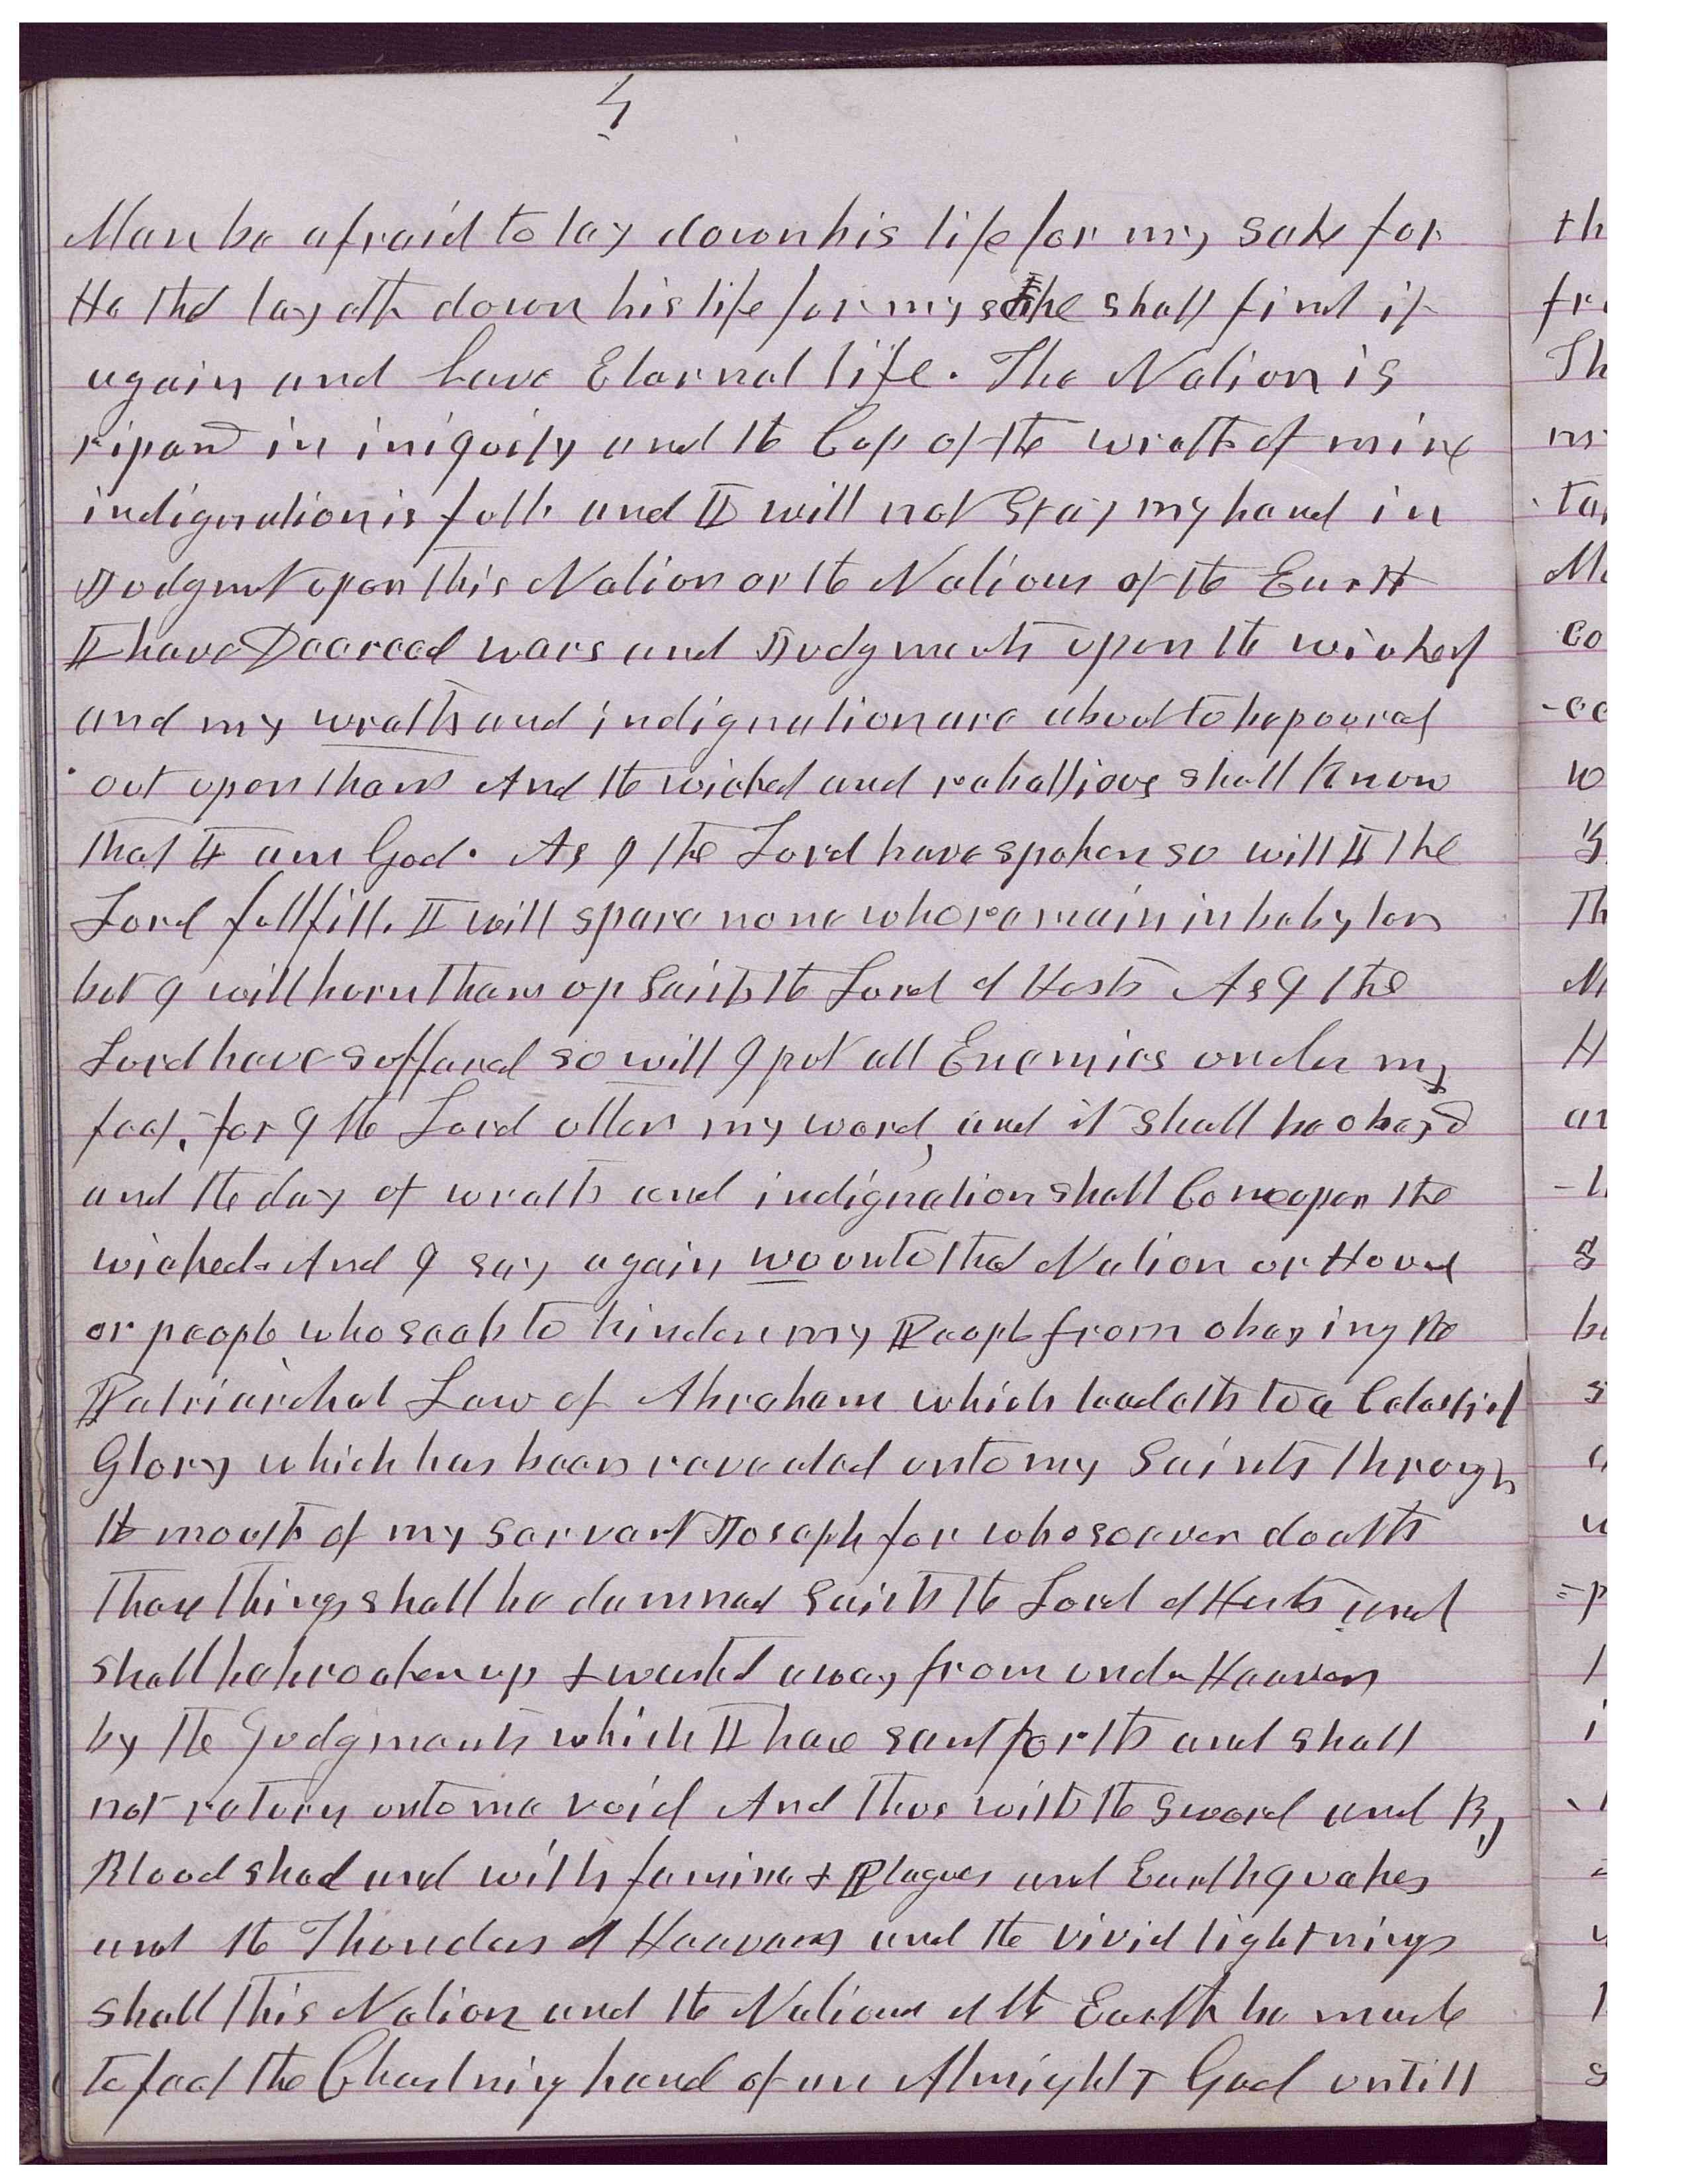 4
Man be afraid to lay down his life for my sake for
He that layeth down his life for my sake shall find it
again and have Eternal life. The Nation is
ripend in iniquity and the Cup of the wrath of mine
indignation is full and I will not Stay my hand in
Judgmt upon this Nation or the Nations of the Earth
I have Decreed wars and Judgments upon the wicked
and my wrath and indignation are about to be poured
out upon them And the wicked and rebellious shall know
that I am God. As I the Lord have spoken so will I the
Lord fullfill. I will spare none who remain in babylon
but I will burn them up Saith the Lord of Hosts As I the
Lord have suffered so will I put all Enemies under my
feet. for I the Lord utter my word, and it shall be obeyd
and the day of wrath and indignation shall Come upon the
wicked. And I say again wo unto that Nation or House
or people who seek to hinder my People from obeying the
Patriarchal Law of Abraham which leadeth to a Celestial
Glory which has been revealed unto my Saints through
the mouth of my servant Joseph for whosoever doeth
those things shall be damned Saith the Lord of Hosts and
shall be broaken up & wasted away from under Heaven
by the Judgments which I have sent forth and shall
not return unto me void And thus with the sword and By
Blood shed and with famine & Plagues and Earthquakes
and the Thunders of Heaven and the vivid lightnings
shall this Nation and the Nations of the Earth be made
to feel the Chastning hand of an Almighty God untill